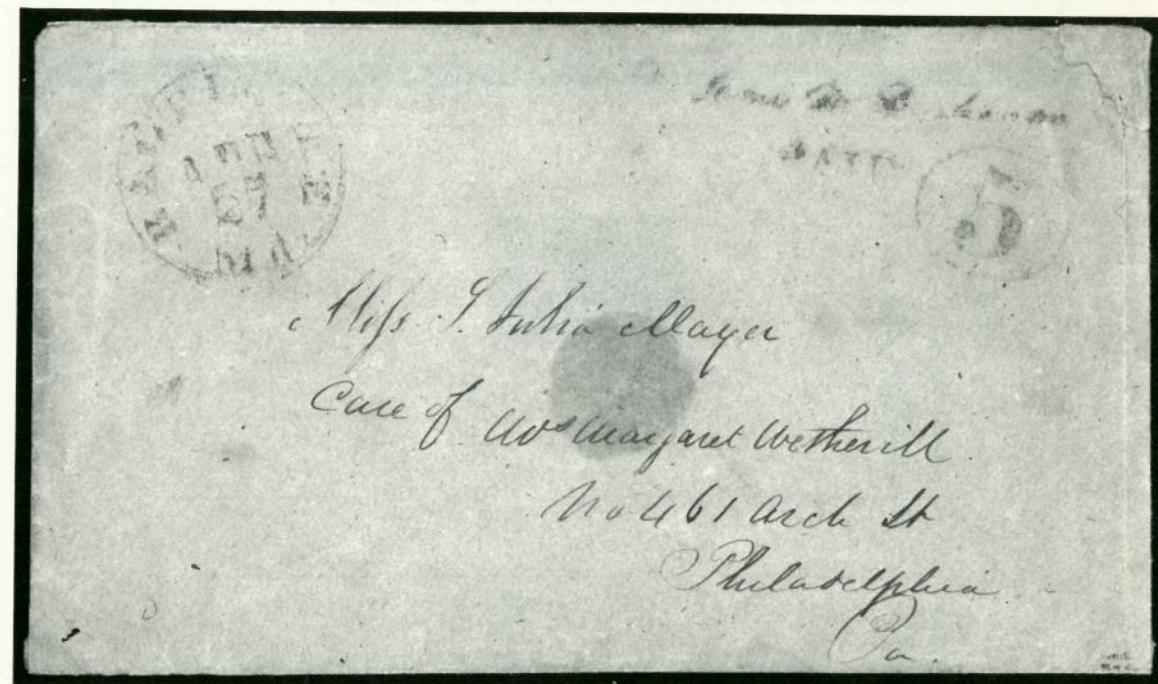 BALTIMORE
APR
27
Md.
5
Miss. S. Julia Mayer
Care of Mrs Margaret Wetherill
No 461 Arch St
Philadelphia
Pa.